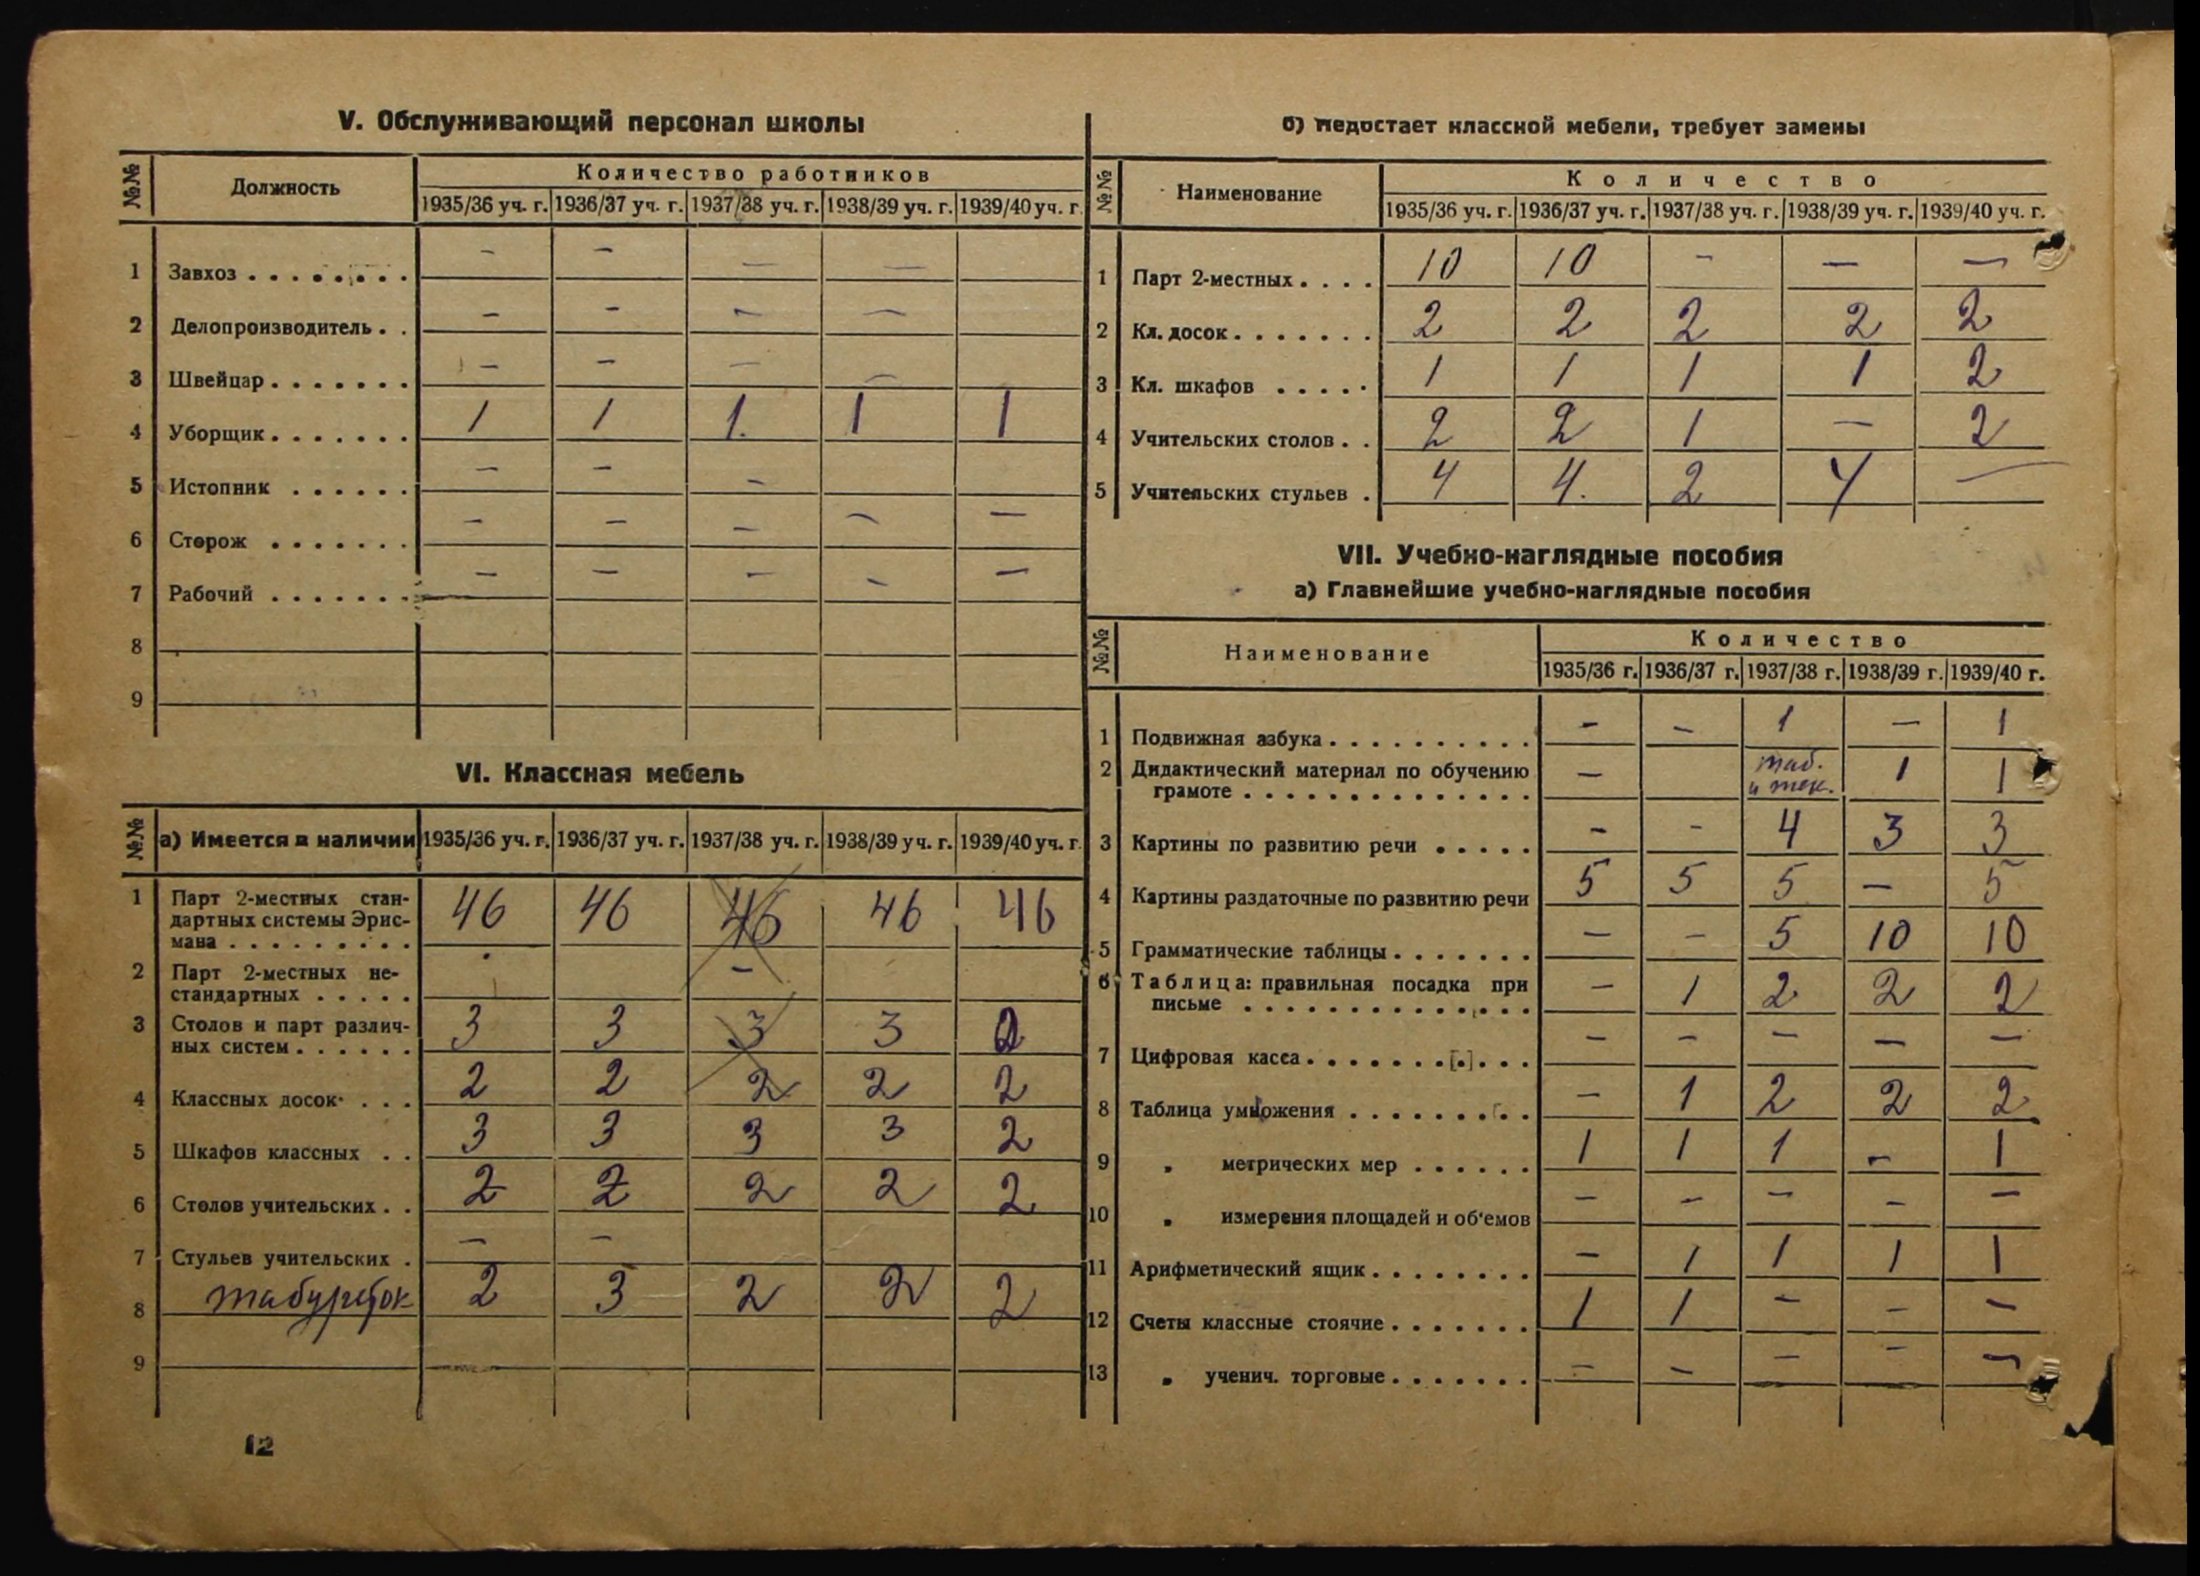 V. Обслуживающий персонал школы
№№ Должность Количество работников
1935/36 уч. г. 1936/37 уч. г. 1937/38 уч. г. 1938/39 уч. г. 1939/40 уч. г.
1 Завхоз . . . . . . . . — — — —
2 Делопроизводитель . . — — — —
3 Швейцар . . . . . . . — — — —
4 Уборщик . . . . . . . 1 1 1. 1 1
5 Истопник . . . . . . — — —
6 Сторож . . . . . . . — — — — —
7 Рабочий . . . . . . . — — — — —
8
9
VI. Классная мебель
№№ а) Имеется в наличии 1935/36 уч. г. 1936/37 уч. г. 1937/38 уч. г. 1938/39 уч. г. 1939/40 уч. г.
1 Парт 2-местных стан-
дартных системы Эрис-
мана . . . . . . . . . 46 46 46 46 46
2 Парт 2-местных не-
стандартных . . . . . —
3 Столов и парт различ-
ных систем . . . . . . 3 3 3 3 2
4 Классных досок . . . 2 2 2 2 2
5 Шкафов классных . . 3 3 3 3 2
6 Столов учительских . . 2 2 2 2 2
7 Стульев учительских . — —
8 табуреток 2 3 2 2 2
9
12
б) Недостает классной мебели, требует замены
№№ Наименование Количество
1935/36 уч. г. 1936/37 уч. г. 1937/38 уч. г. 1938/39 уч. г. 1939/40 уч. г.
1 Парт 2-местных . . . . 10 10 — — —
2 Кл. досок . . . . . . . 2 2 2 2 2
3 Кл. шкафов . . . . . 1 1 1 1 2
4 Учительских столов . . 2 2 1 — 2
5 Учительских стульев . 4 4. 2 4 —
VII. Учебно-наглядные пособия
а) Главнейшие учебно-наглядные пособия
№№ Наименование Количество
1935/36 г. 1936/37 г. 1937/38 г. 1938/39 г. 1939/40 г.
1 Подвижная азбука . . . . . . . . . . — — 1 — 1
2 Дидактический материал по обучению
грамоте . . . . . . . . . . . . . . — таб. и тек. 1 1
3 Картины по развитию речи . . . . . — — 4 3 3
4 Картины раздаточные по развитию речи 5 5 5 — 5
5 Грамматические таблицы . . . . . . . — — 5 10 10
6 Таблица: правильная посадка при
письме . . . . . . . . . . . . . . — 1 2 2 2
7 Цифровая касса . . . . . . . [.] . . . — — — — —
8 Таблица умножения . . . . . . . . . — 1 2 2 2
9 „ метрических мер . . . . . . 1 1 1 — 1
10 „ измерения площадей и об'емов — — — — —
11 Арифметический ящик . . . . . . . . — 1 1 1 1
12 Счеты классные стоячие . . . . . . . 1 1 — — —
13 „ ученич. торговые . . . . . . . — — — — —